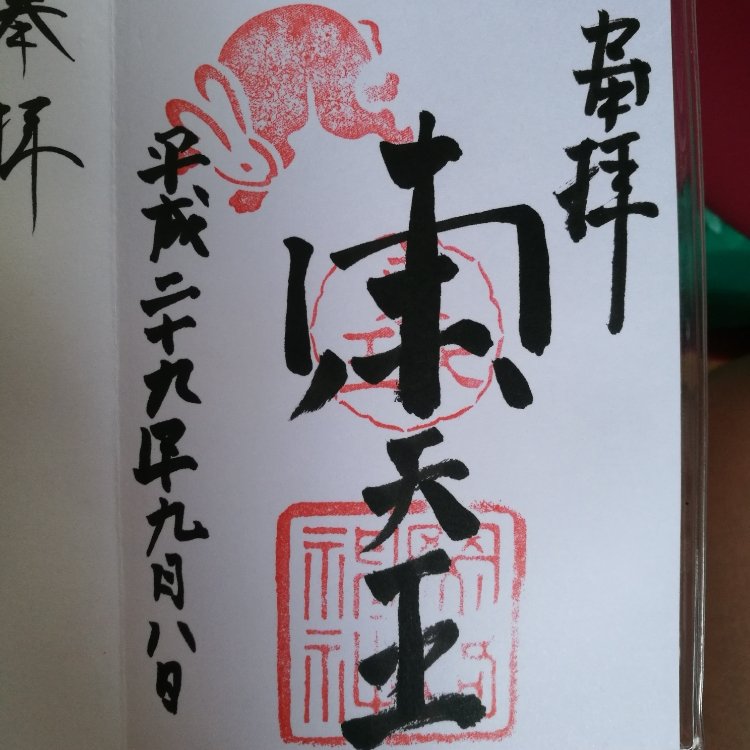 奉拝
東天王
平成二十九年九月八日
奉拝